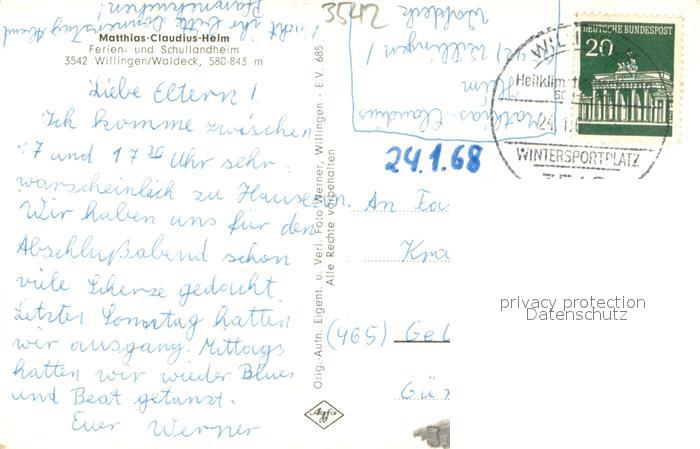 3542
Matthias-Claudius-Heim
Ferien- und Schullandheim
3542 Willingen/Waldeck, 580-843 m
Liebe Eltern!
Ich komme zwischen
17 und 17 30 Uhr sehr
warscheinlich zu Hause an.
Wir haben uns für den
Abschlußabend schon
viele Scherze gedacht.
Letzten Sonnstag hatten
wir ausgang. Mittags
hatten wir wieder Blues
und Beat getanzt.
Euer Werner
Orig.-Aufn. Eigent. u. Verl. Foto Werner, Willingen - E.V. 685
Alle Rechte vorbehalten
Agfa
Matthias-Claudius
Heim
Willingen /
Waldeck
24.1.68
DEUTSCHE BUNDESPOST
20
Heilklim
24.1.
WINTERSPORTPLATZ
An Fa
Kra
(465) Gel
privacy protection
Datenschutz